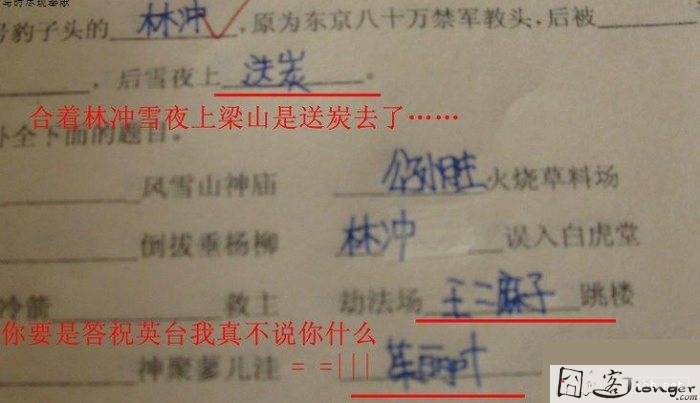 号豹子头的 林冲 ,原为东京八十万禁军教头,后被
,后雪夜上 送炭 。
合着林冲雪夜上梁山是送炭去了……
补全下面的题目。
风雪山神庙 火烧草料场
倒拔垂杨柳 林冲 误入白虎堂
冷箭 救主 劫法场 王二麻子 跳楼
你要是答祝英台我真不说你什么
神聚蓼儿洼 = =|||
囧客Jionger.com